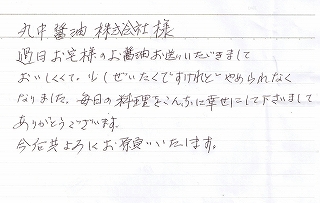 丸中醤油株式会社様
過日お宅様のお醤油お送りいただきまして
おいしくて、少しぜいたくですけれどやめられなく
なりました。毎日の料理をこんなに幸せにして下さいまして
ありがとうございます。
今后共よろしくお願いいたします。